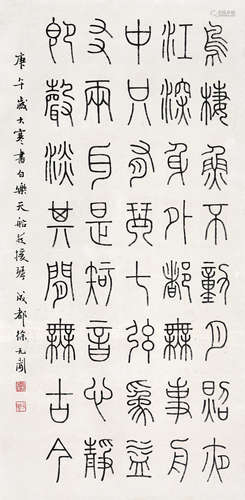 鳥棲魚不動月照夜
江深身外都無事舟
中只有琴七弦為益
友兩耳是知音心靜
即聲淡其間無古今
庚午歲大寒書白樂天船夜援琴 成都徐无聞